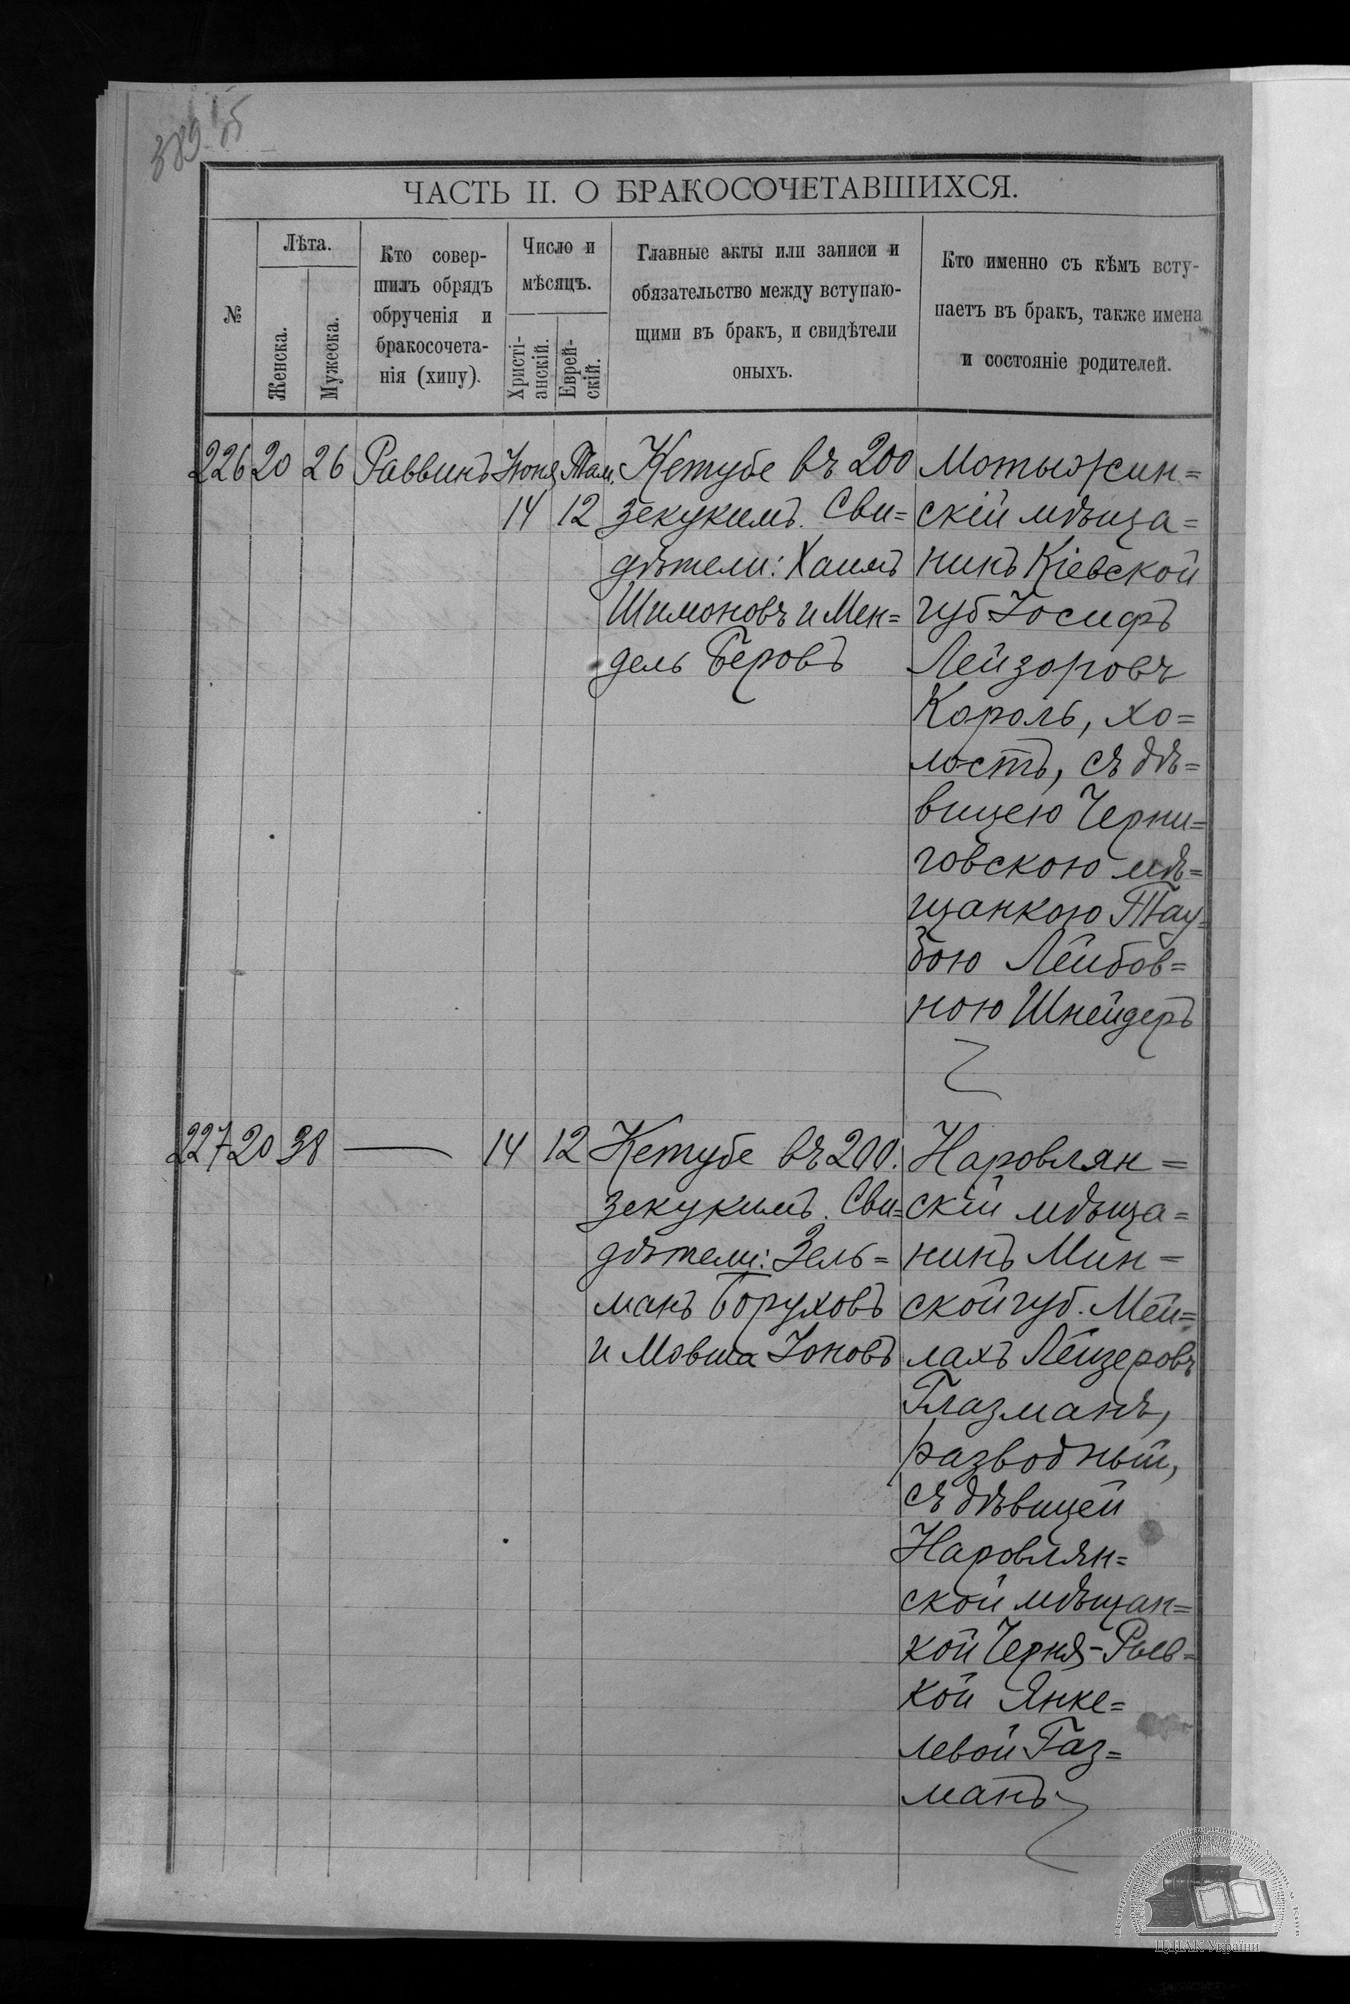 389
ЧАСТЬ II. О БРАКОСОЧЕТАВШИХСЯ.
№
Лѣта.
Женска.
Мужеска.
Кто совер-
шилъ обрядъ
обрученія и
бракосочета-
нія (хипу).
Число и
мѣсяцъ.
Христі-
анскій.
Еврей-
скій.
Главные акты или записи и
обязательство между вступаю-
щими въ бракъ, и свидѣтели
оныхъ.
Кто именно съ кѣмъ всту-
паетъ въ бракъ, также имена
и состояніе родителей.
226 20 26 Раввинъ Іюня Там.
14 12
Кетубе въ 200
зекукимъ. Сви=
дѣтели: Хаимъ
Шимоновъ и Мен=
дель Беровъ
Мотыжин=
скій мѣща=
нинъ Кіевской
губ Іосифъ
Лейзоровъ
Король, хо=
лостъ, съ дѣ=
вицею Черни=
говскою мѣ=
щанкою Тау=
бою Лейбов=
ною Шнейдеръ
227 20 38 — 14 12
Кетубе въ 200.
зекукимъ. Сви=
дѣтели: Зель=
манъ Боруховъ
и Мовша Іоновъ
Наровлян=
скій мѣща=
нинъ Мин=
ской губ. Мей=
лахъ Лейзеровъ
Глазманъ,
разводный,
съ дѣвицей
Наровлян=
ской мѣщан=
кой Черня-Рыв=
кой Янке=
левой Газ=
манъ
ЦДІАК України